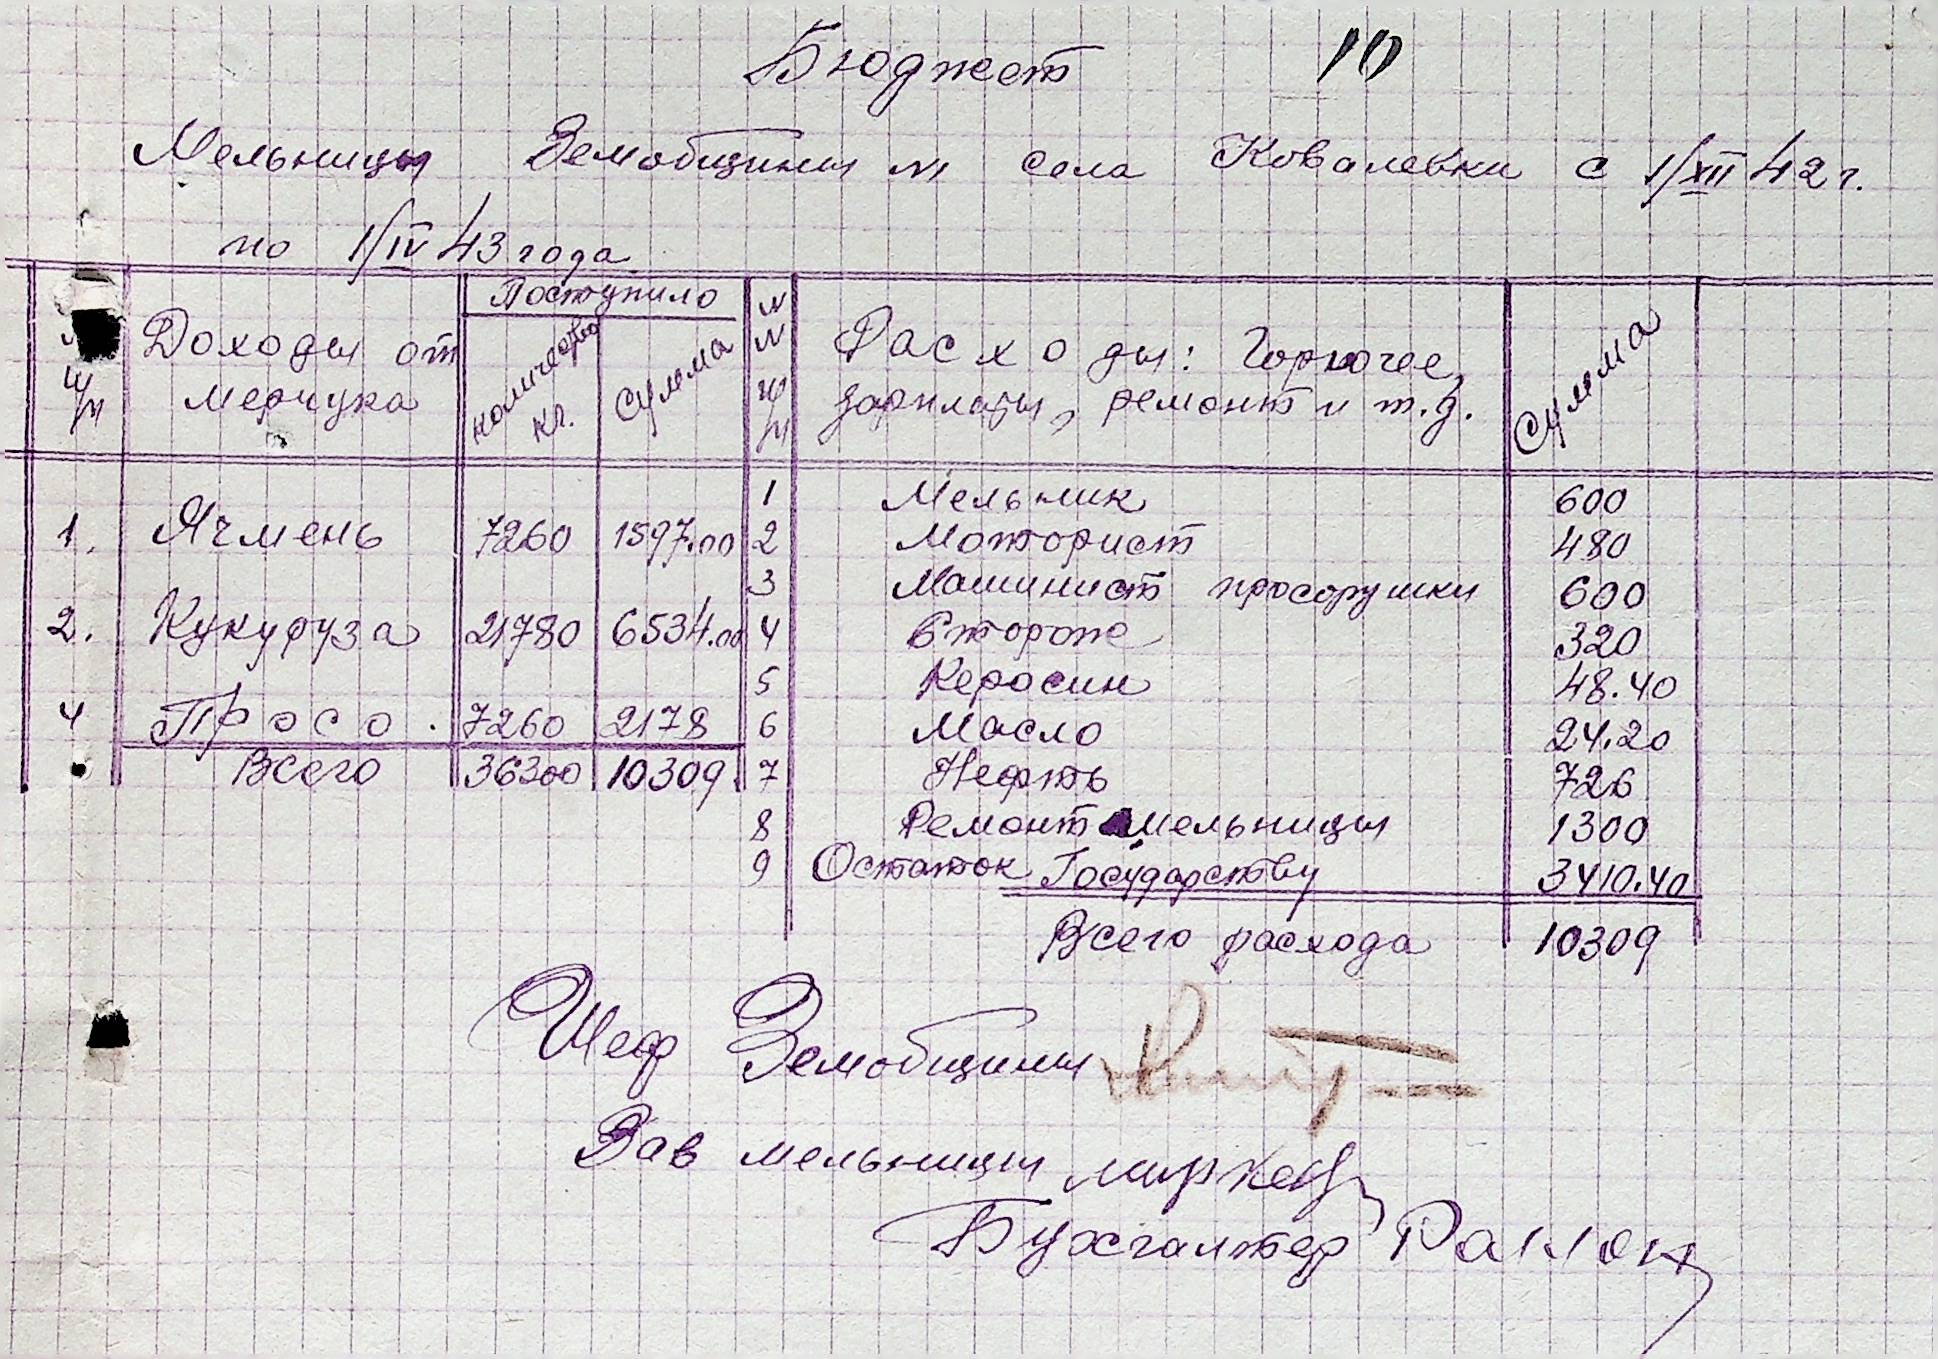 Бюджет 10
Мельницы Земобщины № села Ковалевки с 1/XII 42 г.
по 1/IV 43 года
Доходы от мерчука
Поступило
количество кг.
Сумма
№ № п/п
Расходы: Горючее, зарплаты, ремонт и т.д.
Сумма
1. Ячмень 7260 1597.00
2. Кукуруза 21780 6534.00
4 Просо. 7260 2178
Всего 36300 10309
1 Мельник 600
2 Моторист 480
3 Машинист просорушки 600
4 Сторож 320
5 Керосин 48.40
6 Масло 24.20
7 Нефть 726
8 Ремонт мельницы 1300
9 Остаток Государству 3410.40
Всего расхода 10309
Шеф Земобщины
Зав мельницы
Бухгалтер